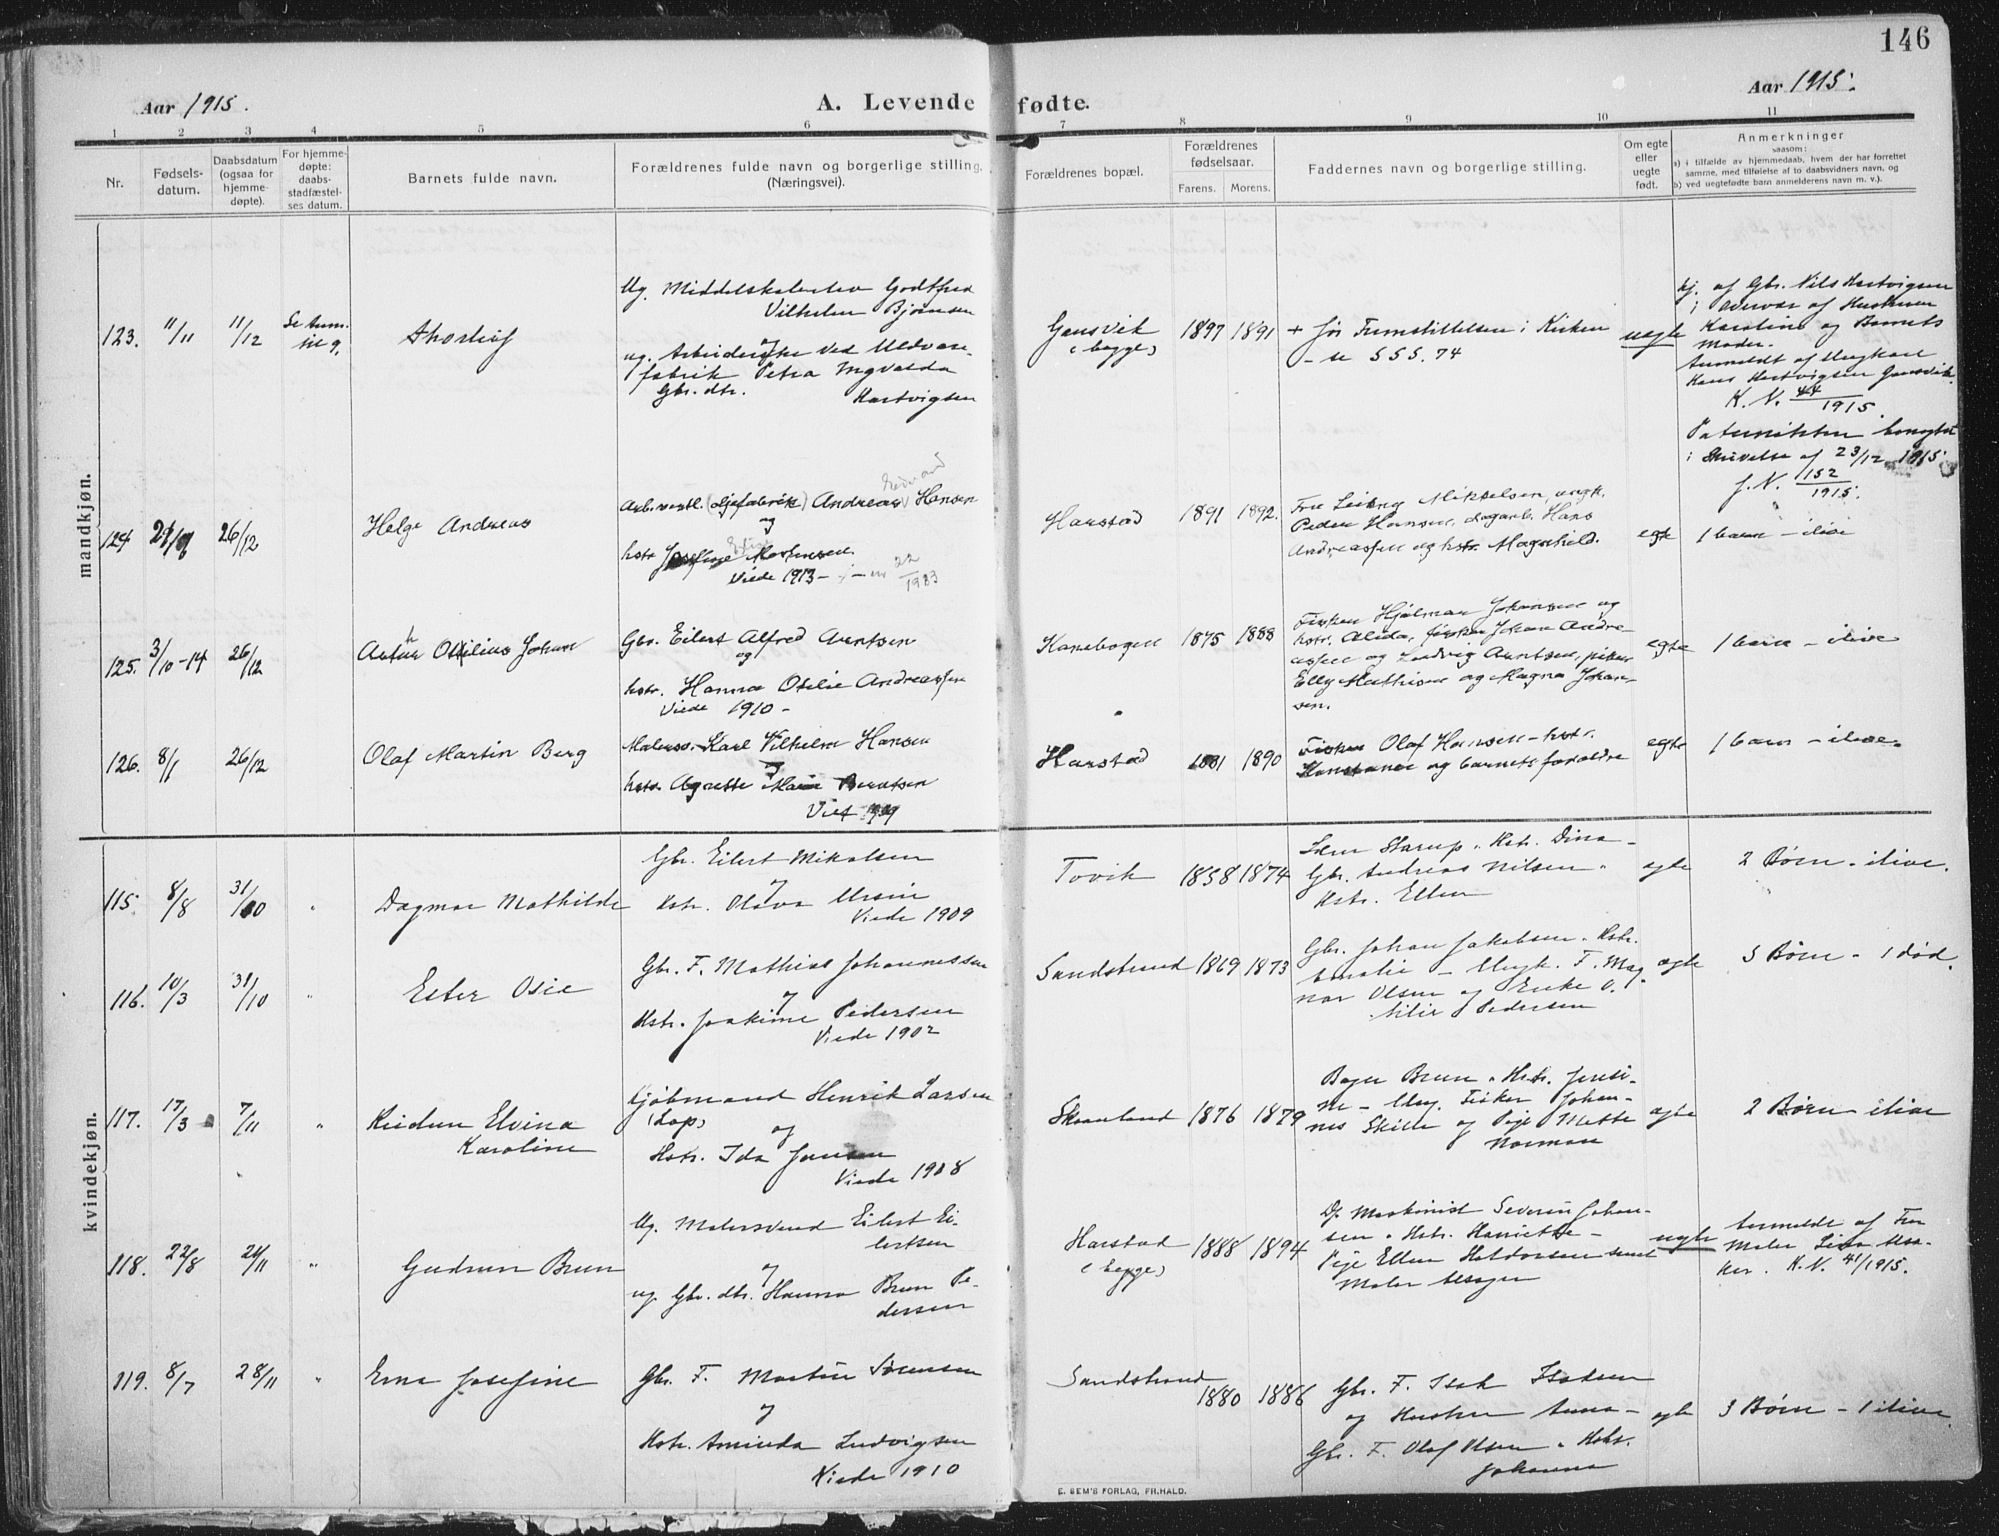 146
Aar 1915.
A. Levende fødte.
Aar 1915.
1 2 3 4 5 6 7 8 9 10 11
Nr.
Fødsels-
datum.
Daabsdatum
(ogsaa for
hjemme-
døpte).
For hjemme-
døpte:
daabs-
stadfæstel-
ses datum.
Barnets fulde navn.
Forældrenes fulde navn og borgerlige stilling.
(Næringsvei).
Forældrenes bopæl.
Forældrenes
fødselsaar.
Farens. Morens.
Faddernes navn og borgerlige stilling.
Om egte
eller
uegte
født.
Anmerkninger
saasom:
a) i tilfælde av hjemmedaab, hvem der har forrettet
samme, med tilføielse af to daabsvidners navn, og
b) ved uegtefødte barn anmelderens navn m. v.).
mandkjøn.
123. 11/11 11/12
Thorleif
Ug. Middelskoleelev Godtfred
Vilhelm Bjørnsen
og
ug. Arbeiderske ved Uldvare-
fabrik Petra Ingvalda
Gbr. dtr. Hartvigsen
Gansvik
(begge)
1897 1891
+ før Fremstillelsen i Kirken
- se S S S. 74
uegte
hj. af Gbr. Nils Hartvigsen
i Overvær af Hustruen
Karoline og Barnets
Moder.
Anmeldt af Ungkarl
Hans Hartvigsen Gansvik.
K. N. 44/1915.
i Skrivelse af 23/12 1915.
J. N. 152/1915.
124 26/12
Helge Andreas
(Sjefabrik) Andreas Hansen
Edvard
og
hstr
Viede 1913 - 22/1983
Harstad
1891 1892.
Mikkelsen, ungk.
Peder Hansen, Hans
Andreassen og hstr. Magnhild.
egte
1 barn - ilive
125. 3/10-14 26/12
Artur Otilius Johan
Gbr. Eilert Alfred Arntsen
og
hstr. Hanna Otilie Andreassen
Viede 1910 -
Kanebogen
1875 1888
Fisker Hjalmar Johansen og
hstr. Alida, fisker Johan Andre-
assen og Ludvig Arntsen, piker
Elly Mathisen og Magna Johan-
sen.
egte
1 barn - ilive
126. 8/1 26/12
Olaf Martin Berg
Malersv. Karl Vilhelm Hansen
og
hstr. Agnette Marie Berntsen
Harstad
1881 1890
Fisker Olaf Hansen - hstr.
Konstance og barnets forældre
egte
1 barn - ilive.
kvindekjøn.
115. 8/8 31/10 "
Dagmar Mathilde
Gbr. Eilert Mikalsen
og
Hstr. Olava Ursin
Viede 1909
Tovik
1858 1874
Hstr. Dina -
Gbr. Andreas Nilsen "
Hstr. Ellen
egte
2 Børn - ilive.
116. 10/3 31/10 "
Ester Osie
Gbr. F. Mathias Johannessen
og
Hstr. Joakime Pedersen
Viede 1902
Sandstrand
1869 1873
Gbr. Johan Jakobsen " Hstr.
Amalie - Ungk. F. Mag-
nar Olsen og Enke O-
tilie Pedersen
egte
5 Børn - 1 død.
117. 17/3 7/11 "
Reidun Elvina
Karoline
Kjøbmand Henrik Larsen
(Lap)
og
Hstr. Ida Jensen
Viede 1908
Skaanland
1876 1879
Bager Brun " Hstr. Jensi-
ne - Ung. Fisker Johan-
nes Skille og Pige Mette
Normann
egte
2 Børn - ilive
118. 22/8 21/11 "
Gudrun Brun
Ug. Malersvend Eilert Ei-
lertsen
og
ug. Gbr. dtr. Hanna Brun Pe-
dersen
Harstad
(begge)
1888 1894
Dp. Maskinist Severin Johan-
sen " Hstr. Henriette -
Pige Ellen Haldorsen samt
uegte
Anmeldt af Fru
K. N. 41/1915.
119. 8/7 28/11 "
Erna Josefine
Gbr. F. Martin Sørensen
og
Hstr. Aminda Ludvigsen
Viede 1910
Sandstrand
1880 1886
Gbr. F. Isak Isaksen
og Hustru Anna -
Gbr. F. Olaf Olsen " Hstr.
Johanna
egte
3 Børn - 1 ilive.
E. SEM'S FORLAG, FR.HALD.